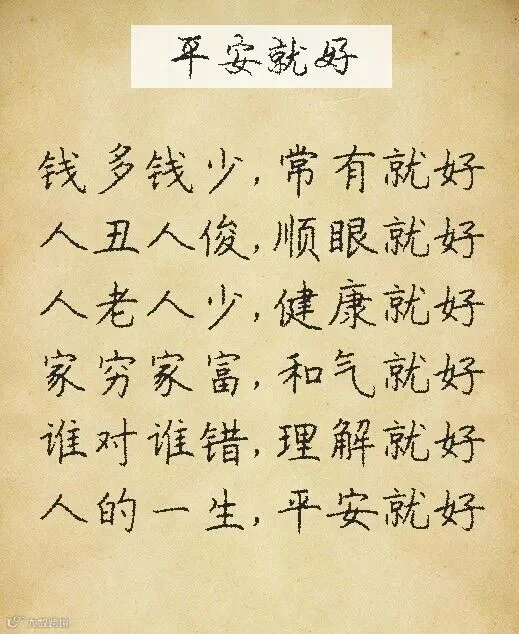 平安就好
钱多钱少,常有就好
人丑人俊,顺眼就好
人老人少,健康就好
家穷家富,和气就好
谁对谁错,理解就好
人的一生,平安就好